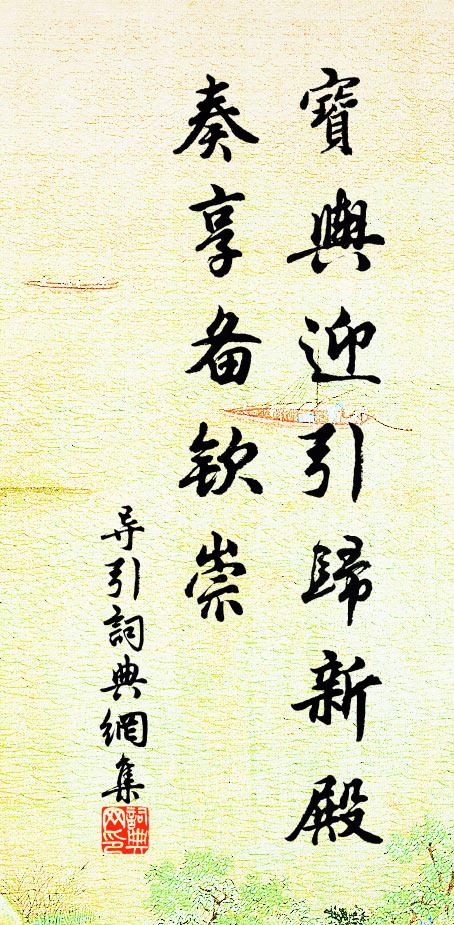 寶輿迎引歸新殿
奏享备欽崇
导引詞典網集
詞典
网印